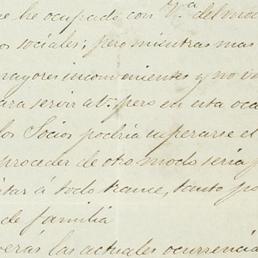 e he ocupado con V.a del mod
os sociales; pero mientras mas
mayores inconvenientes y no ve
para servir a V. pero en esta oca
los Socios podria esperarse el
proceder de otro modo seria p
itar á todo trance, tanto po
de familia
verás las actuales ocurrencia